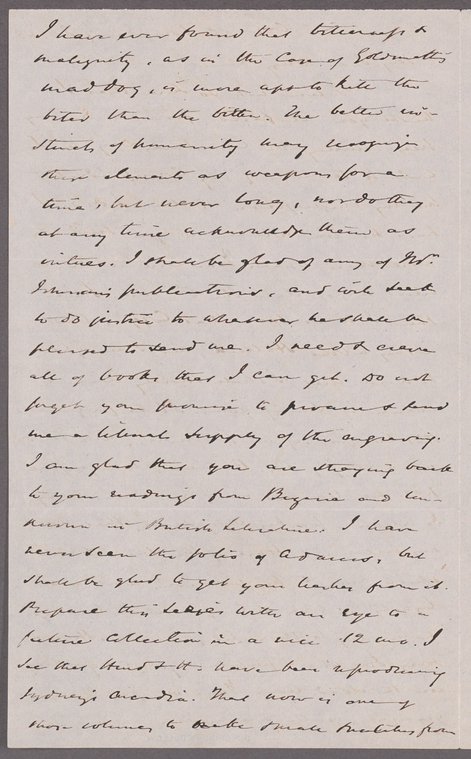 I have ever found that bitterness &
malignity, as in the Case of Goldsmith's
mad dog, is more apt to kill the
biter than the bitten. The better in-
stincts of humanity may recognize
these elements as weapons for a
time, but never long, nor do they
at any time acknowledge them as
virtues. I shall be glad of any of Mr.
publications, and will seek
to do justice to whatever he shall be
pleased to send me. I need & crave
all of books that I can get. Do not
forget your promise to procure & send
me a liberal supply of the engraving.
I am glad that you are straying back
to your readings from Bizarre and Un-
known in British Literature. I have
never seen the folio of Adams, but
shall be glad to get your from it.
Prepare this Series with an eye to a
future Collection in a nice 12 mo. I
see that Hurd & H. have been reproducing
Sydney's Arcadia. That now is one of
those volumes to make small from